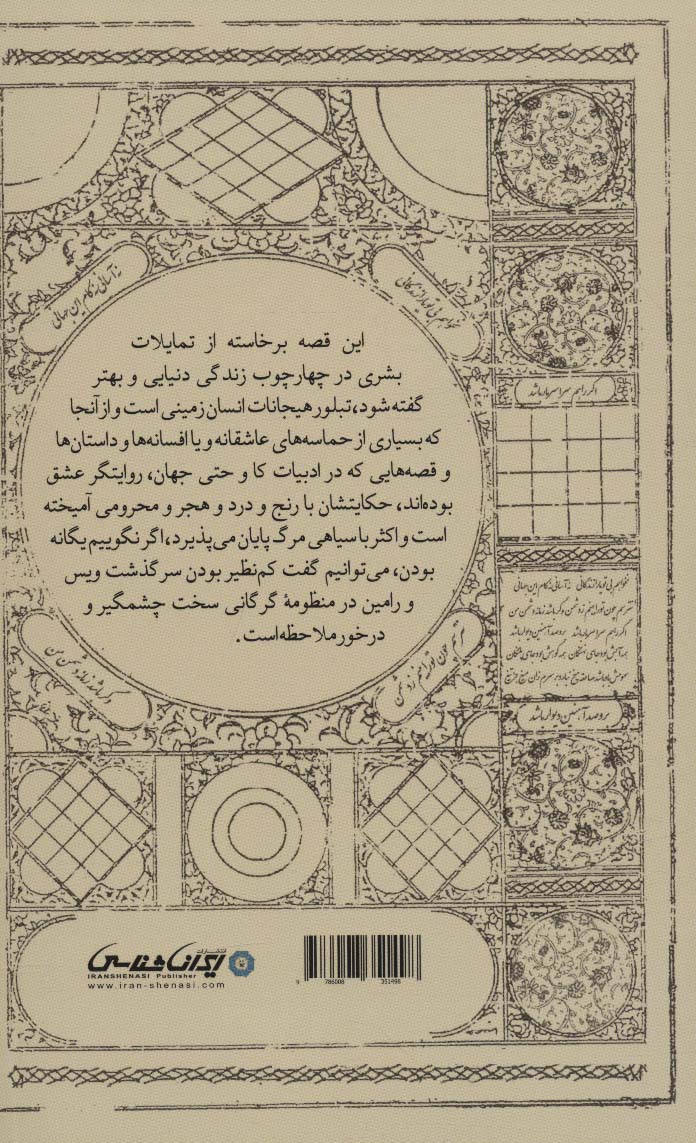 این قصه برخاسته از تمایلات
بشری در چهارچوب زندگی دنیایی و بهتر
گفته شود، تبلور هیجانات انسان زمینی است و از آنجا
که بسیاری از حماسه‌های عاشقانه و یا افسانه‌ها و داستان‌ها
و قصه‌هایی که در ادبیات کا و حتی جهان، روایتگر عشق
بوده‌اند، حکایتشان با رنج و درد و هجر و محرومی آمیخته
است و اکثر با سیاهی مرگ پایان می‌پذیرد، اگر نگوییم یگانه
بودن، می‌توانیم گفت کم‌نظیر بودن سرگذشت ویس
و رامین در منظومهٔ گرگانی سخت چشمگیر و
درخور ملاحظه است.
اگر راهم سراسر مار باشد
برو صد آهنین دیوار باشد
انتشارات
ایران‌شناسی
IRANSHENASI Publisher
www.iran-shenasi.com
9 786008 351498